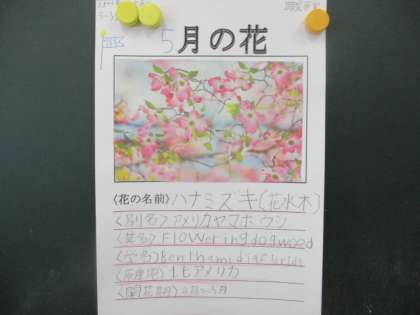 5月の花
〈花の名前〉ハナミズキ(花水木)
〈別名〉アメリカヤマボウシ
〈英名〉Flowering dogwood
〈学名〉Benthamidia florida
〈原産地〉北アメリカ
〈開花時期〉4月〜5月